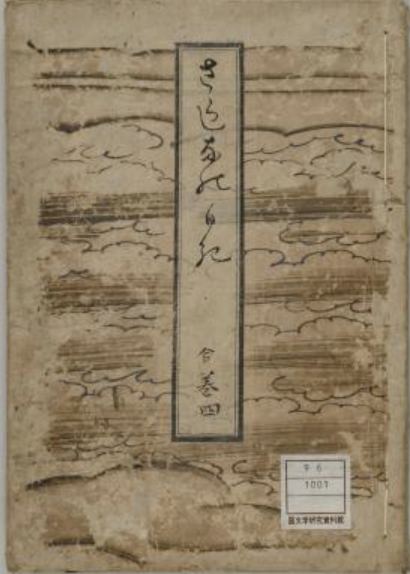 さらしなの日記
合巻四
サ 6
1001
国文学研究資料館